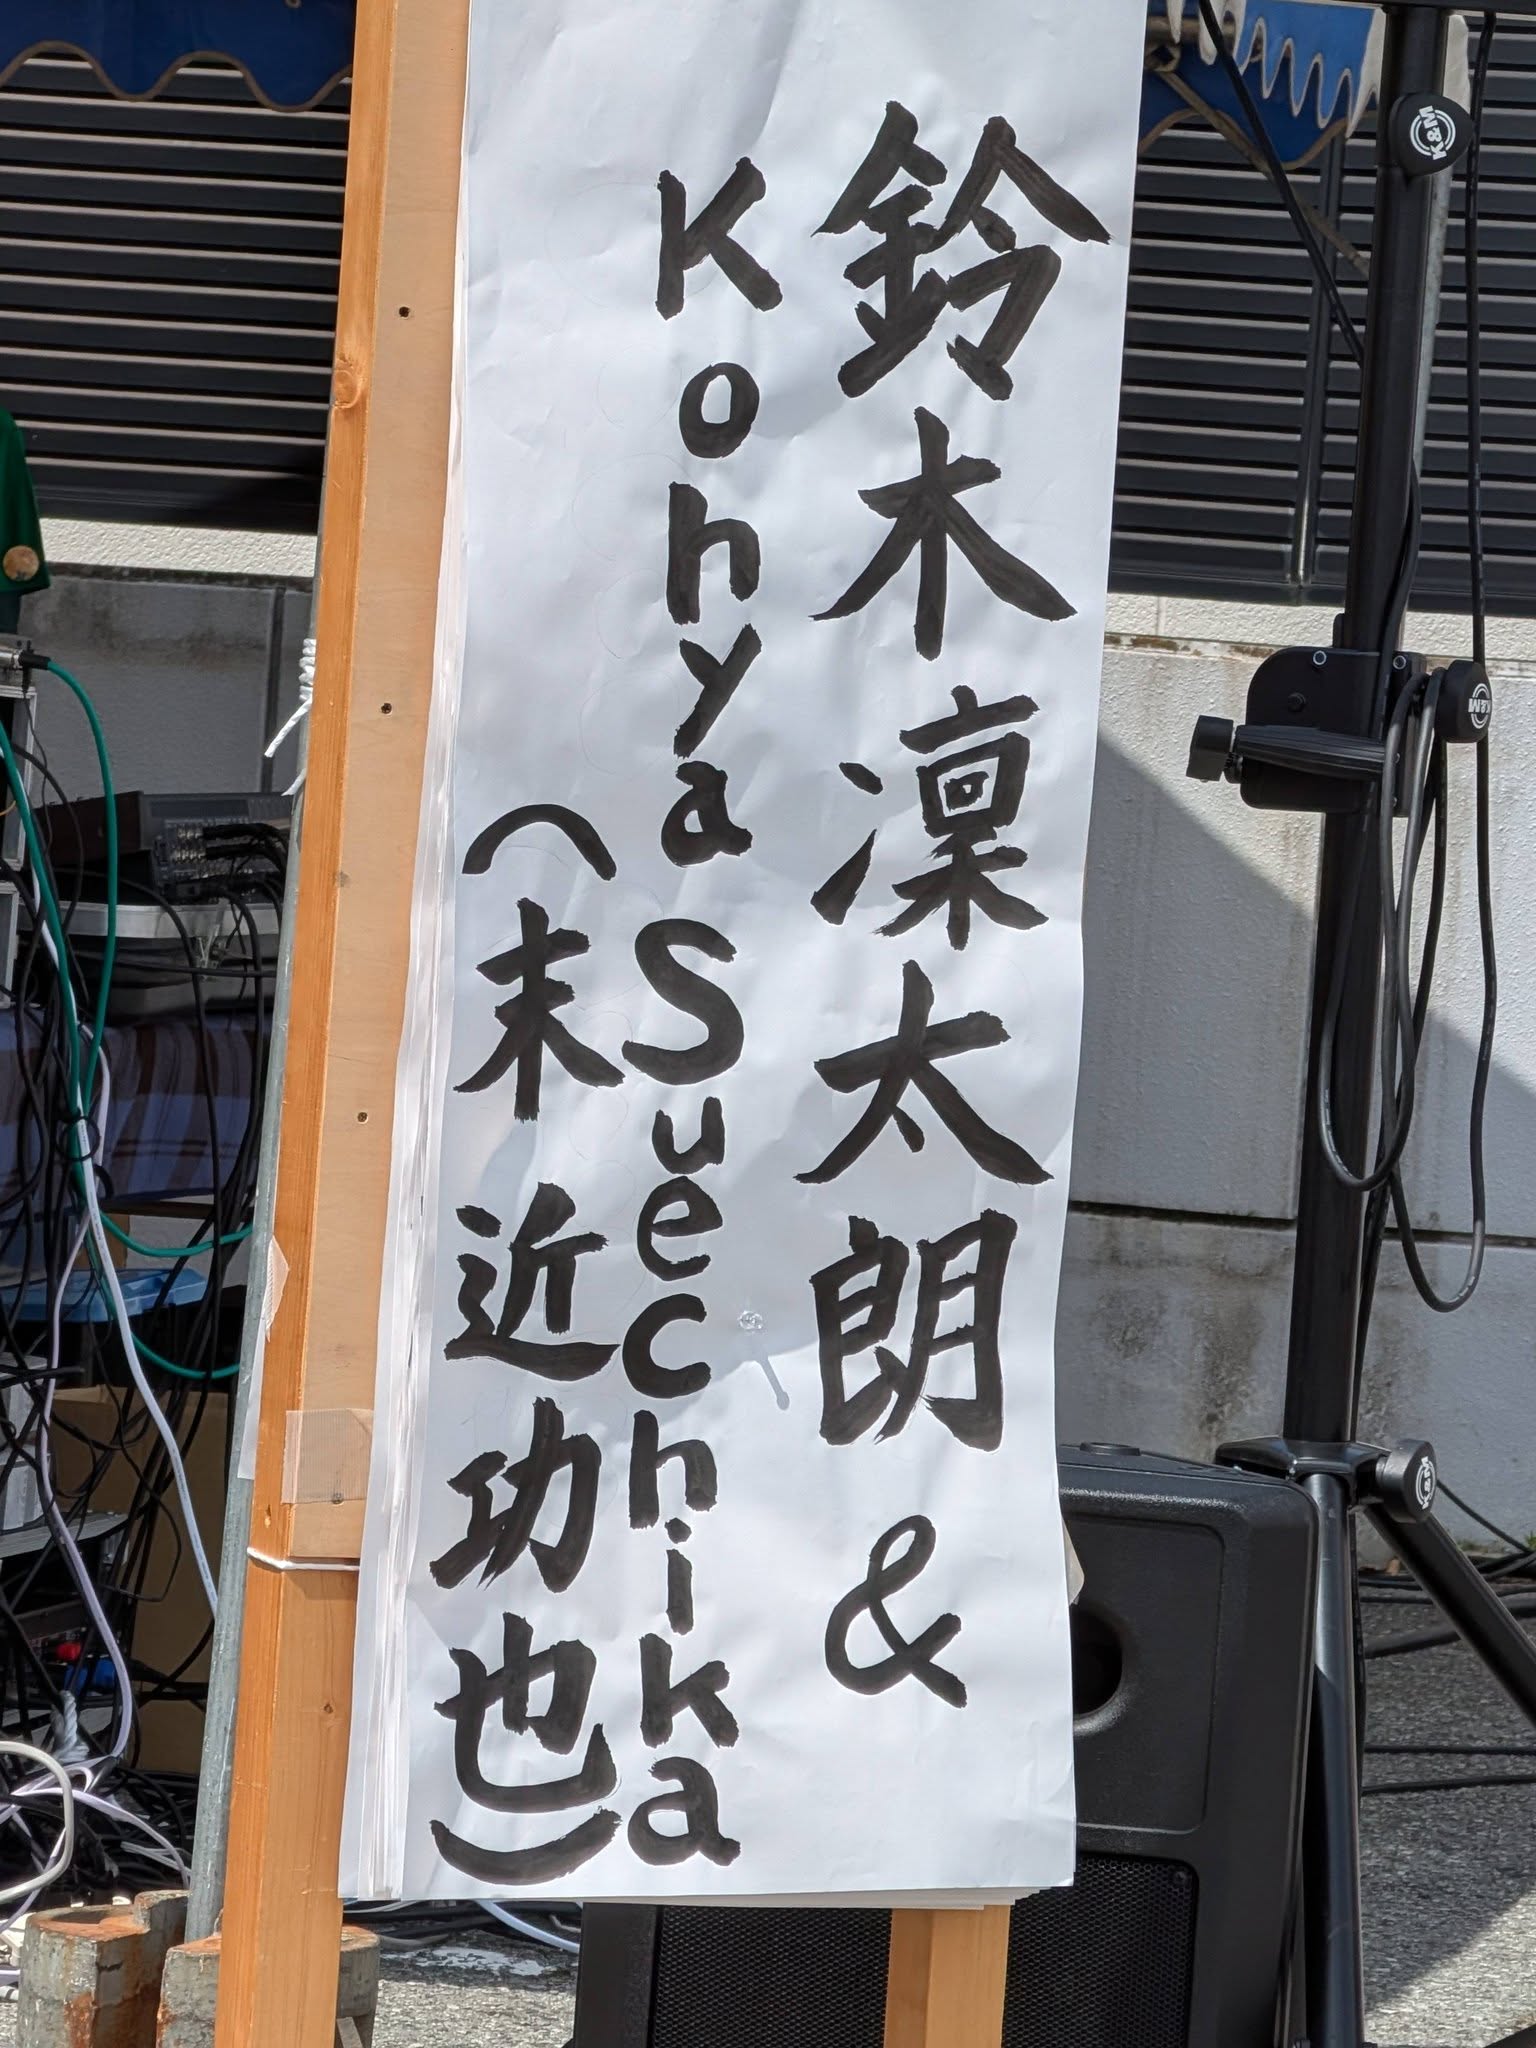 鈴木凜太朗&
Konya Suechika
(末近功也)
K&M
K&M
K&M